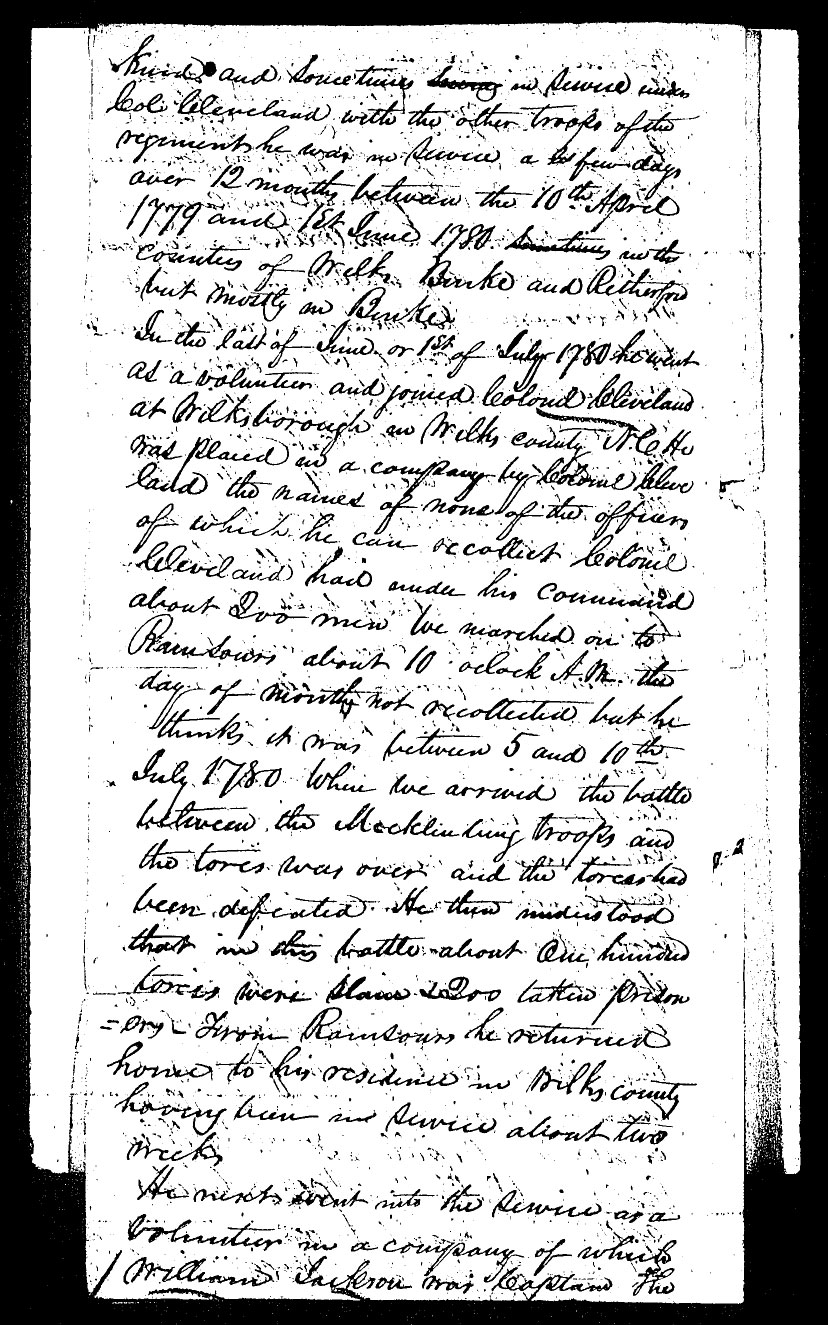 kind and sometimes in service under
Col Cleveland with the other troops of the
regiment he was in service a few days
over 12 months between the 10th April
1779 and 1st June 1780 sometimes in the
counties of Wilks Burke and Retherford
but mostly in Burke
In the last of June or 1st of July 1780 he went
as a volunteer and joined Colonel Cleveland
at Wilksborough in Wilks county N.C He
was placed in a company by Colonel Cleve
land the names of none of the officers
of which he can recollect Colonel
Cleveland had under his command
about 200 men We marched on to
Ramsours about 10 oclock A.M. the
day of month not recollected but he
thinks it was between 5 and 10th
July 1780 When we arrived the battle
between the Mecklinburg troops and
the tories was over and the tories had
been defeated. He then understood
that in this battle about One hundred
tories were slain & 200 taken prison
=ers - From Ramsours he returned
home to his residence in Wilks county
having been in service about two
weeks
He next went into the service as a
volunteer in a company of which
William Jackson was Captain The